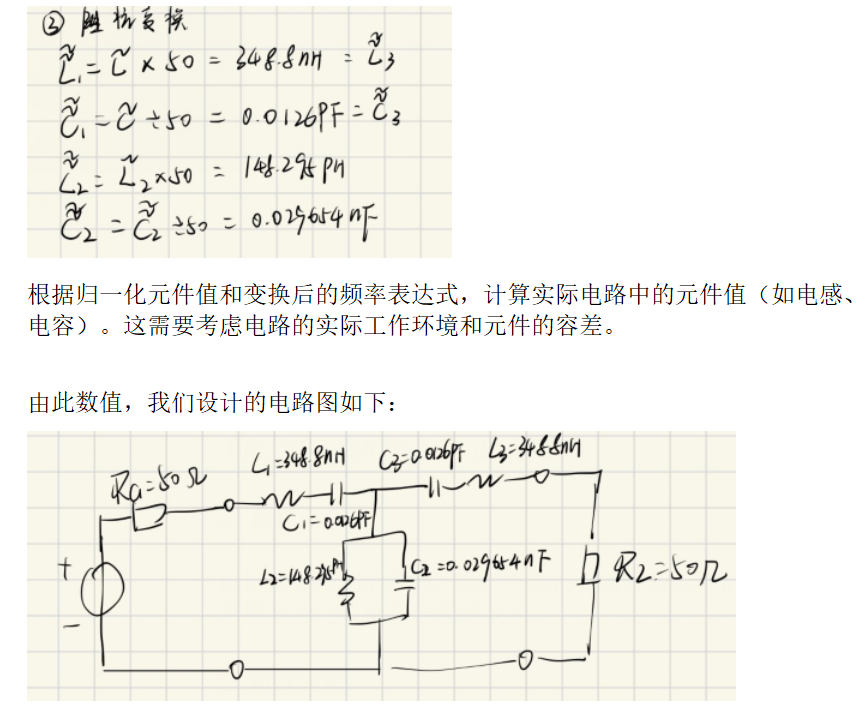 ② 阻抗变换
L̃̃₁ = L̃ × 50 = 348.8nH = L̃̃₃
C̃̃₁ = C̃ ÷ 50 = 0.0126PF = C̃̃₃
L̃̃₂ = L̃₂ × 50 = 148.295 PH
C̃̃₂ = C̃₂ ÷ 50 = 0.029654 nF
根据归一化元件值和变换后的频率表达式，计算实际电路中的元件值（如电感、
电容）。这需要考虑电路的实际工作环境和元件的容差。
由此数值，我们设计的电路图如下：
RG=50Ω L₁=348.8nH C₃=0.0126PF L₃=348.8nH
C₁=0.0126PF
+ L₂=148.295PH C₂=0.029654nF R2=50Ω
−